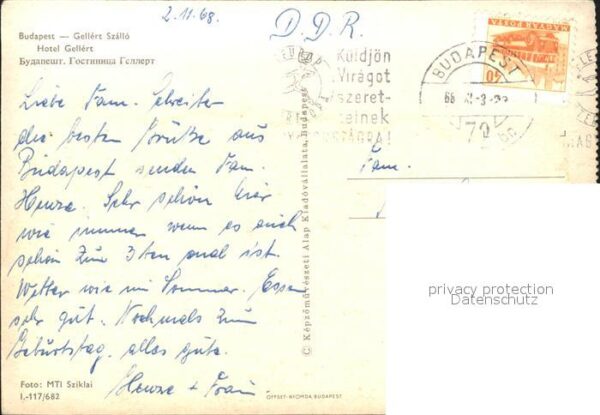 2.11.68.
D.D.R.
Budapest — Gellért Szálló
Hotel Gellért
Будапешт. Гостиница Геллерт
MAGYAR POSTA
40
BUDAPEST
72
Küldjön
Virágot
szeret-
teinek
Liebe Fam. Schreiber
die besten Grüße aus
Budapest senden Fam.
Sehr schön hier
wie immer wenn es auch
schon zum 3ten mal ist.
Wetter wie im Sommer. Essen
sehr gut. Nochmals zum
Geburtstag alles gute.
+ Frau
Fam.
© Képzőművészeti Alap Kiadóvállalata, Budapest
privacy protection
Datenschutz
Foto: MTI Sziklai
I.-117/682
OFFSET-NYOMDA BUDAPEST